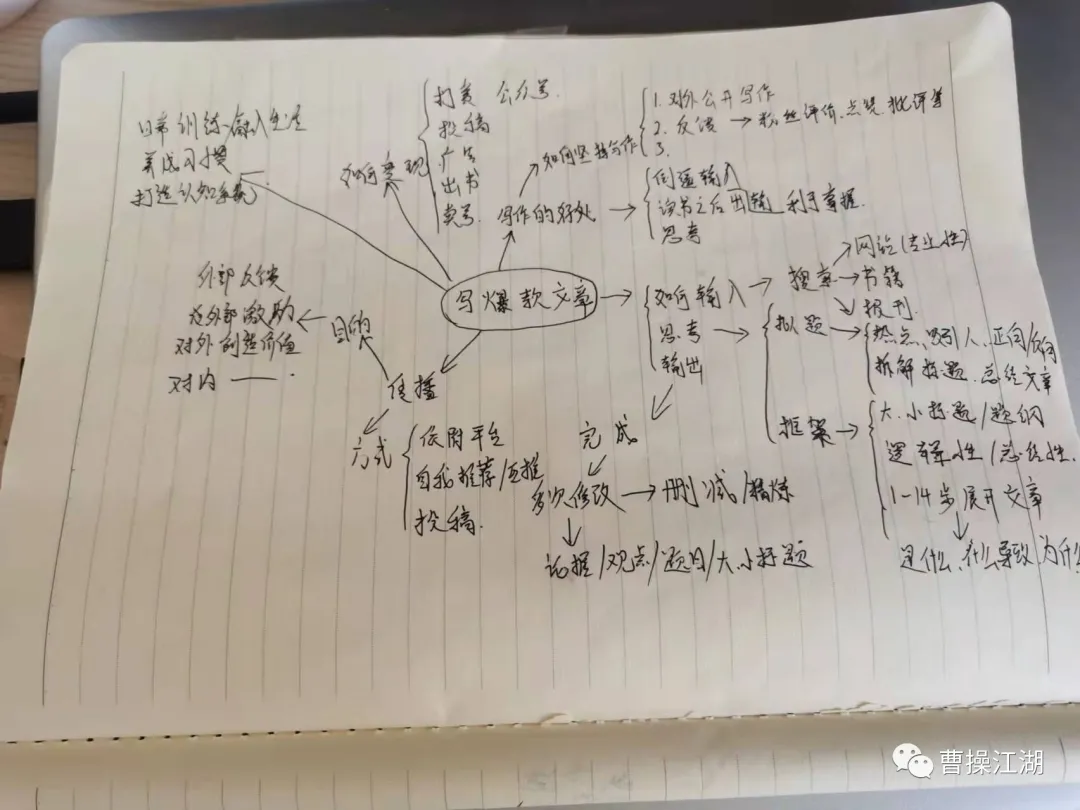 日常训练、融入生活
养成习惯
打造认知系统
如何变现
打赏 公众号.
投稿
广告
出书
卖号.
如何坚持写作
1. 对外公开写作
2. 反馈 → 粉丝评价、点赞、批评等
3.
写作的好处
倒逼输入
读书之后 输出 利于掌握.
思考
写爆款文章
如何输入
思考
输出
搜索
网站(专业性)
书籍
报刊.
拟题
热点、吸引人、正向/反向
拆解标题、总结文章
框架
大、小标题/题纲
逻辑性/总结性.
1-14步展开文章
是什么、什么导致、为什
完成
多次修改 → 删减/精炼
论据/观点/题目/大、小标题
传播
目的
外部反馈
对外创造价值
对内 ——.
方式
自我推荐/互推
投稿.
曹操江湖